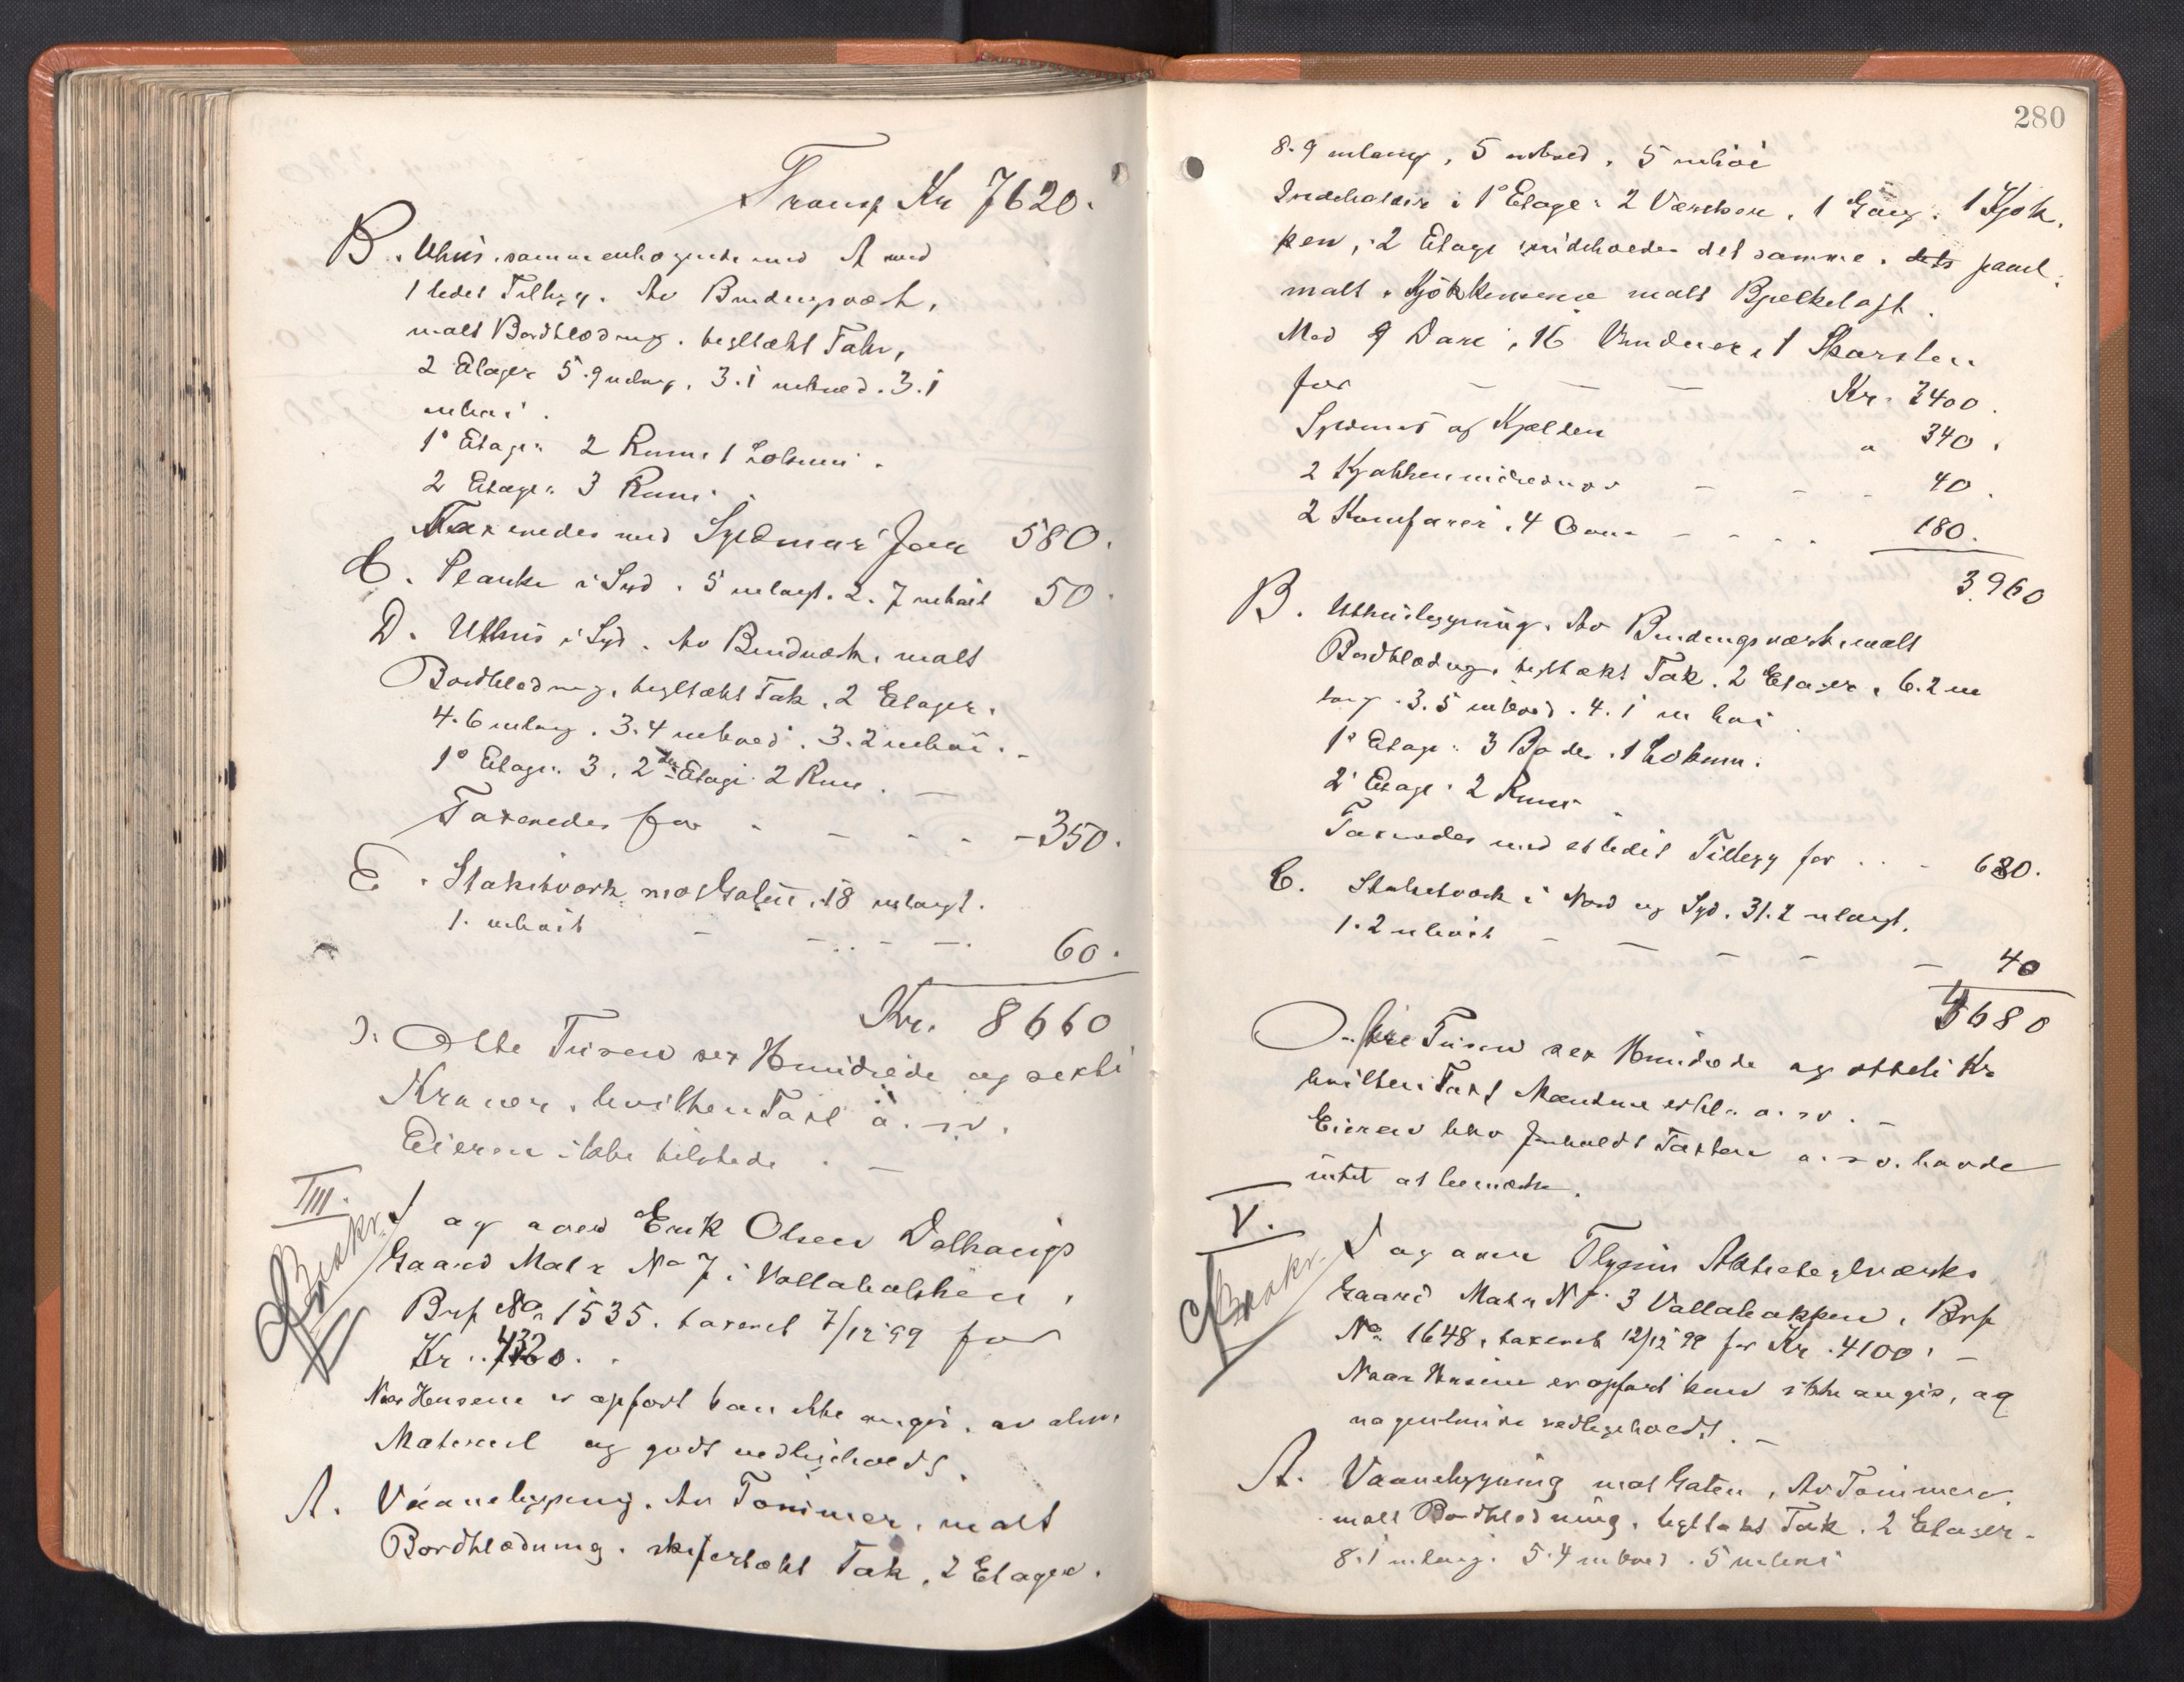 Transp Kr 7620.
B. Uhus sammenhengende med A med
1 ledet Tilbyg. Av Bindingsværk,
malt Bordklædning. tegltækt Tak,
2 Etager 5.9 m lang, 3.1 m bred. 3.1
m høi.
1° Etage: 2 Rum 1 Lokum.
2 Etage: 3 Rum.
Taxeredes med Syldmur for 580.
C. Planke i Syd. 5 m langt. 2.7 m høit 50.
D. Uthus i Syd. Av Bindværk, malt
Bordklædning, tegltækt Tak, 2 Etager.
4.6 m lang. 3.4 m bred. 3.2 m høi. -
1° Etage: 3, 2den Etage 2 Rum. -
Taxeredes for - - - - 350.
E. Stakitværk mot Gaten, 18 m langt.
1. m høit - - - - 60.
Kr. 8660
Otte Tusen sex Hundrede og sexti
Kroner, hvilken Taxt o. s. v.
Eieren ikke tilstede. -
III. Brakr.
og over Erik Olsen Dalhaugs
Gaard Matr No 7 i Vallabakken,
Brp No 1535. taxeret 7/12 99 for
Kr. 4320.
Naar Husene er opført kan ikke angis. av
Material og godt vedligeholdt.
A. Vaanebygning. Av Tømmer, malt
Bordklædning. skifertækt Tak, 2 Etager.
280
8.9 m lang, 5 m bred, 5 m høi
Indeholder i 1° Etage: 2 Værelser, 1 Gang, 1 Kjøk,
ken, 2 Etage indeholder det samme. panel,
malt, Kjøkkenerne malt Bjelkeloft.
Med 9 Døre, 16 Vinduer, 1 Skorsten
for - - - Kr. 3400.
Syldmur og Kjelder " 340.
2 Kjøkkenindredninger - - - 40.
2 Komfurer, 4 Ovne - - - - 180.
3960
B. Uthusbygning. Av Bindingsværk, malt
Bordklædning, tegltækt Tak. 2 Etager, 6.2 m
lang. 3.5 m bred. 4.1 m høi.
1° Etage: 3 Boder. 1 Lokum.
2' Etage: 2 Rum.
Taxeredes med et ledet Tilbygg for . . - 680.
C. Stakitværk i Nord og Syd. 31.2 m langt.
1.2 m høit - - - - - 40
4680
Fire Tusen sex Hundrede og otteti Kr
hvilken Taxt Mændene o. s. v. -
Eieren blev forholdt Taxten o. s. v. havde
intet at bemærke.
V. Brakr.
og over Flygins Aktieteglværks
Gaard Matr No 3 Vallabakken, Brp
No 1648, taxeret 12/12 99 for Kr. 4100. -
Naar Husene er opført kan ikke angis, og
vedligeholdt. -
A. Vaanebygning mot Gaten, Av Tømmer.
malt Bordklædning. tegltækt Tak. 2 Etager.
8.1 m lang. 5.4 m bred. 5 m høi